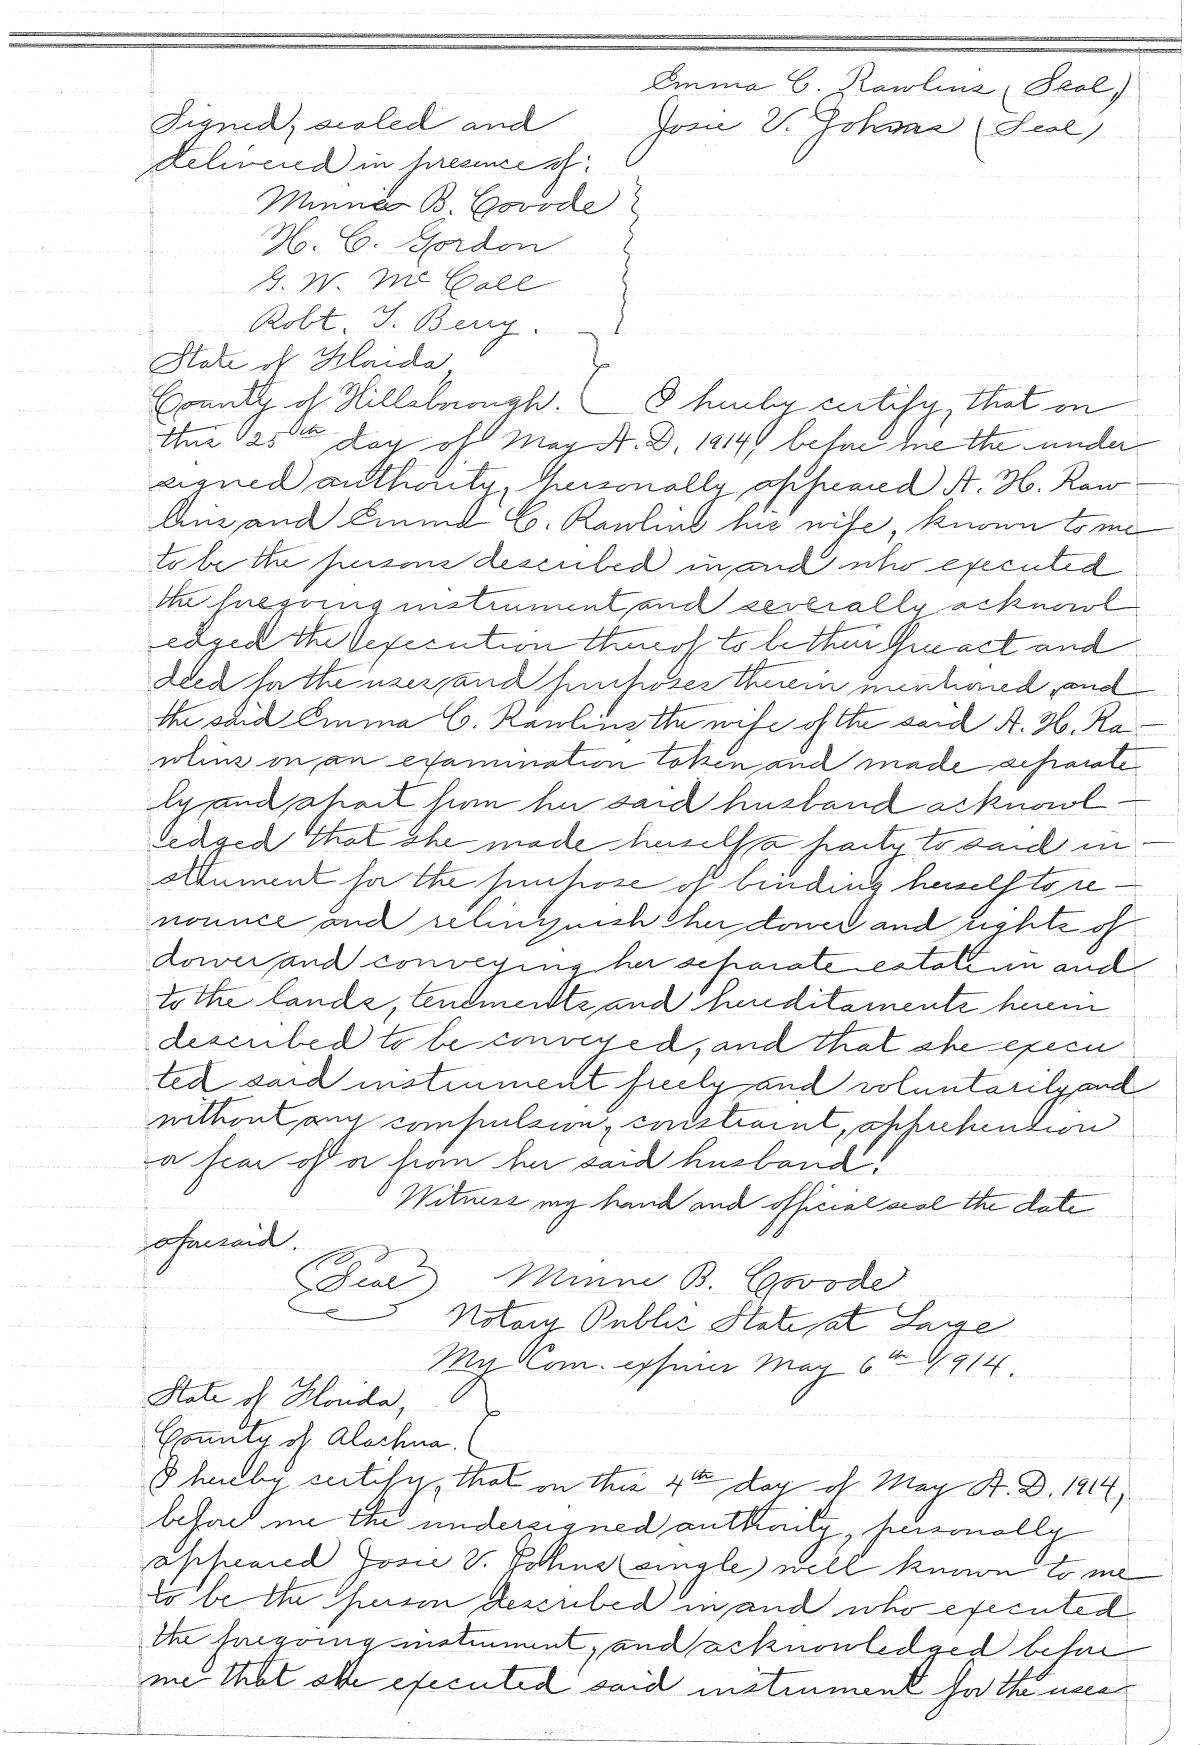 Emma C. Rawlins (Seal)
Signed, sealed and Josie V. Johns (Seal)
delivered in presence of:
Minnie B. Covode
H. C. Gordon
G. W. McCall
Robt. T. Berry.
State of Florida,
County of Hillsborough. I hereby certify, that on
this 25th day of May A.D. 1914, before me the under
signed authority, personally appeared A. H. Raw-
lins and Emma C. Rawlins his wife, known to me
to be the persons described in and who executed
the foregoing instrument and severally acknowl
edged the execution thereof to be their free act and
deed for the uses and purposes therein mentioned, and
the said Emma C. Rawlins the wife of the said A. H. Ra-
wlins on an examination taken and made separate
ly and apart from her said husband acknowl-
edged that she made herself a party to said in-
strument for the purpose of binding herself to re-
nounce and relinquish her dower and rights of
dower and conveying her separate estate in and
to the lands, tenements and hereditaments herein
described to be conveyed, and that she execu
ted said instrument freely and voluntarily and
without any compulsion, constraint, apprehension
or fear of or from her said husband.
Witness my hand and official seal the date
aforesaid.
(Seal) Minne B. Covode
Notary Public State at Large
My Com. expires May 6th 1914.
State of Florida,
County of Alachua.
I hereby certify, that on this 4th day of May A.D. 1914,
before me the undersigned authority, personally
appeared Josie V. Johns (single) well known to me
to be the person described in and who executed
the foregoing instrument, and acknowledged before
me that she executed said instrument for the uses